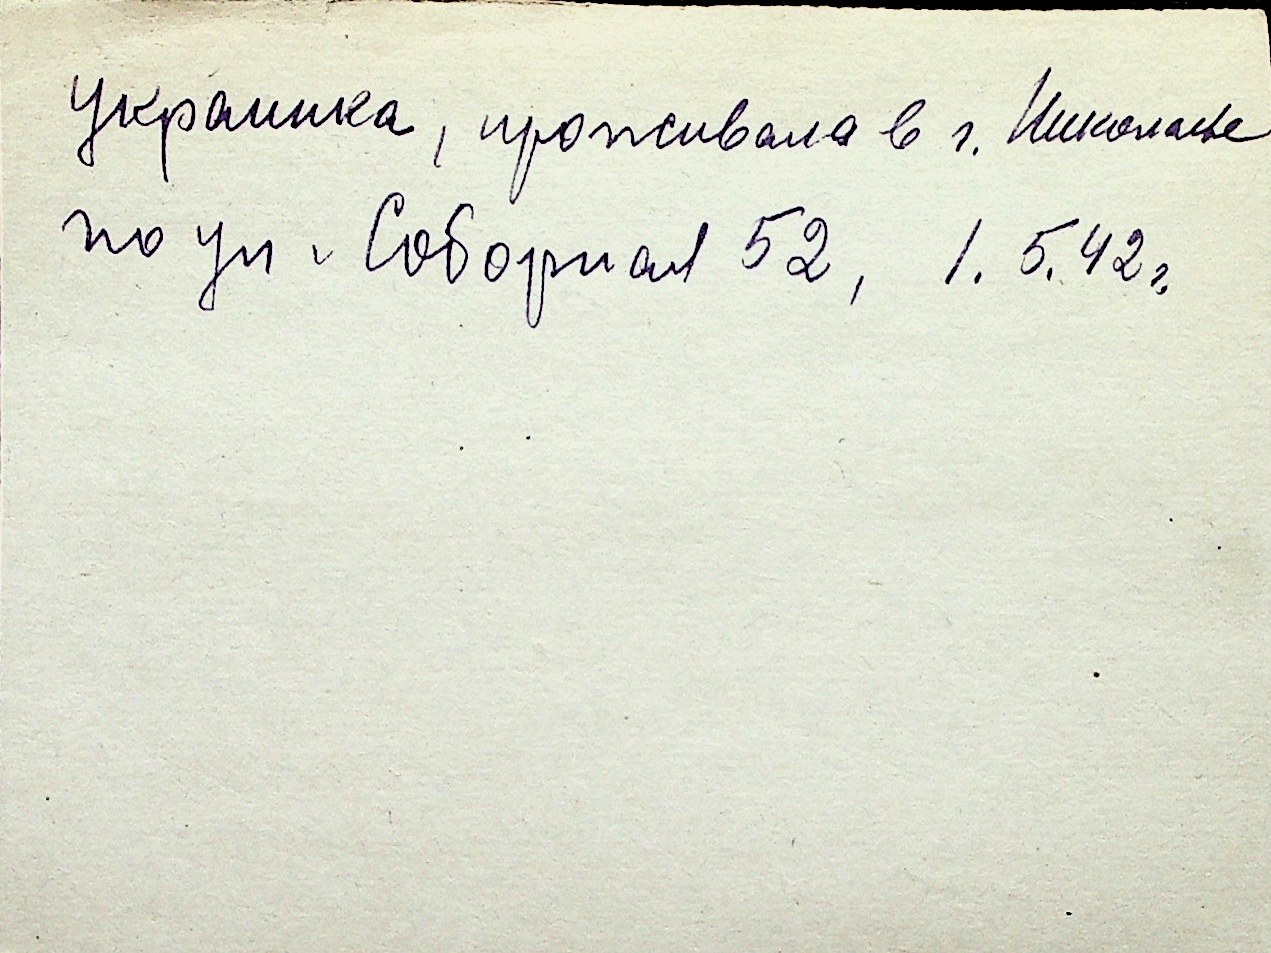 Украинка, проживала в г. Николаеве
по ул. Соборная 52, 1.5.42г.